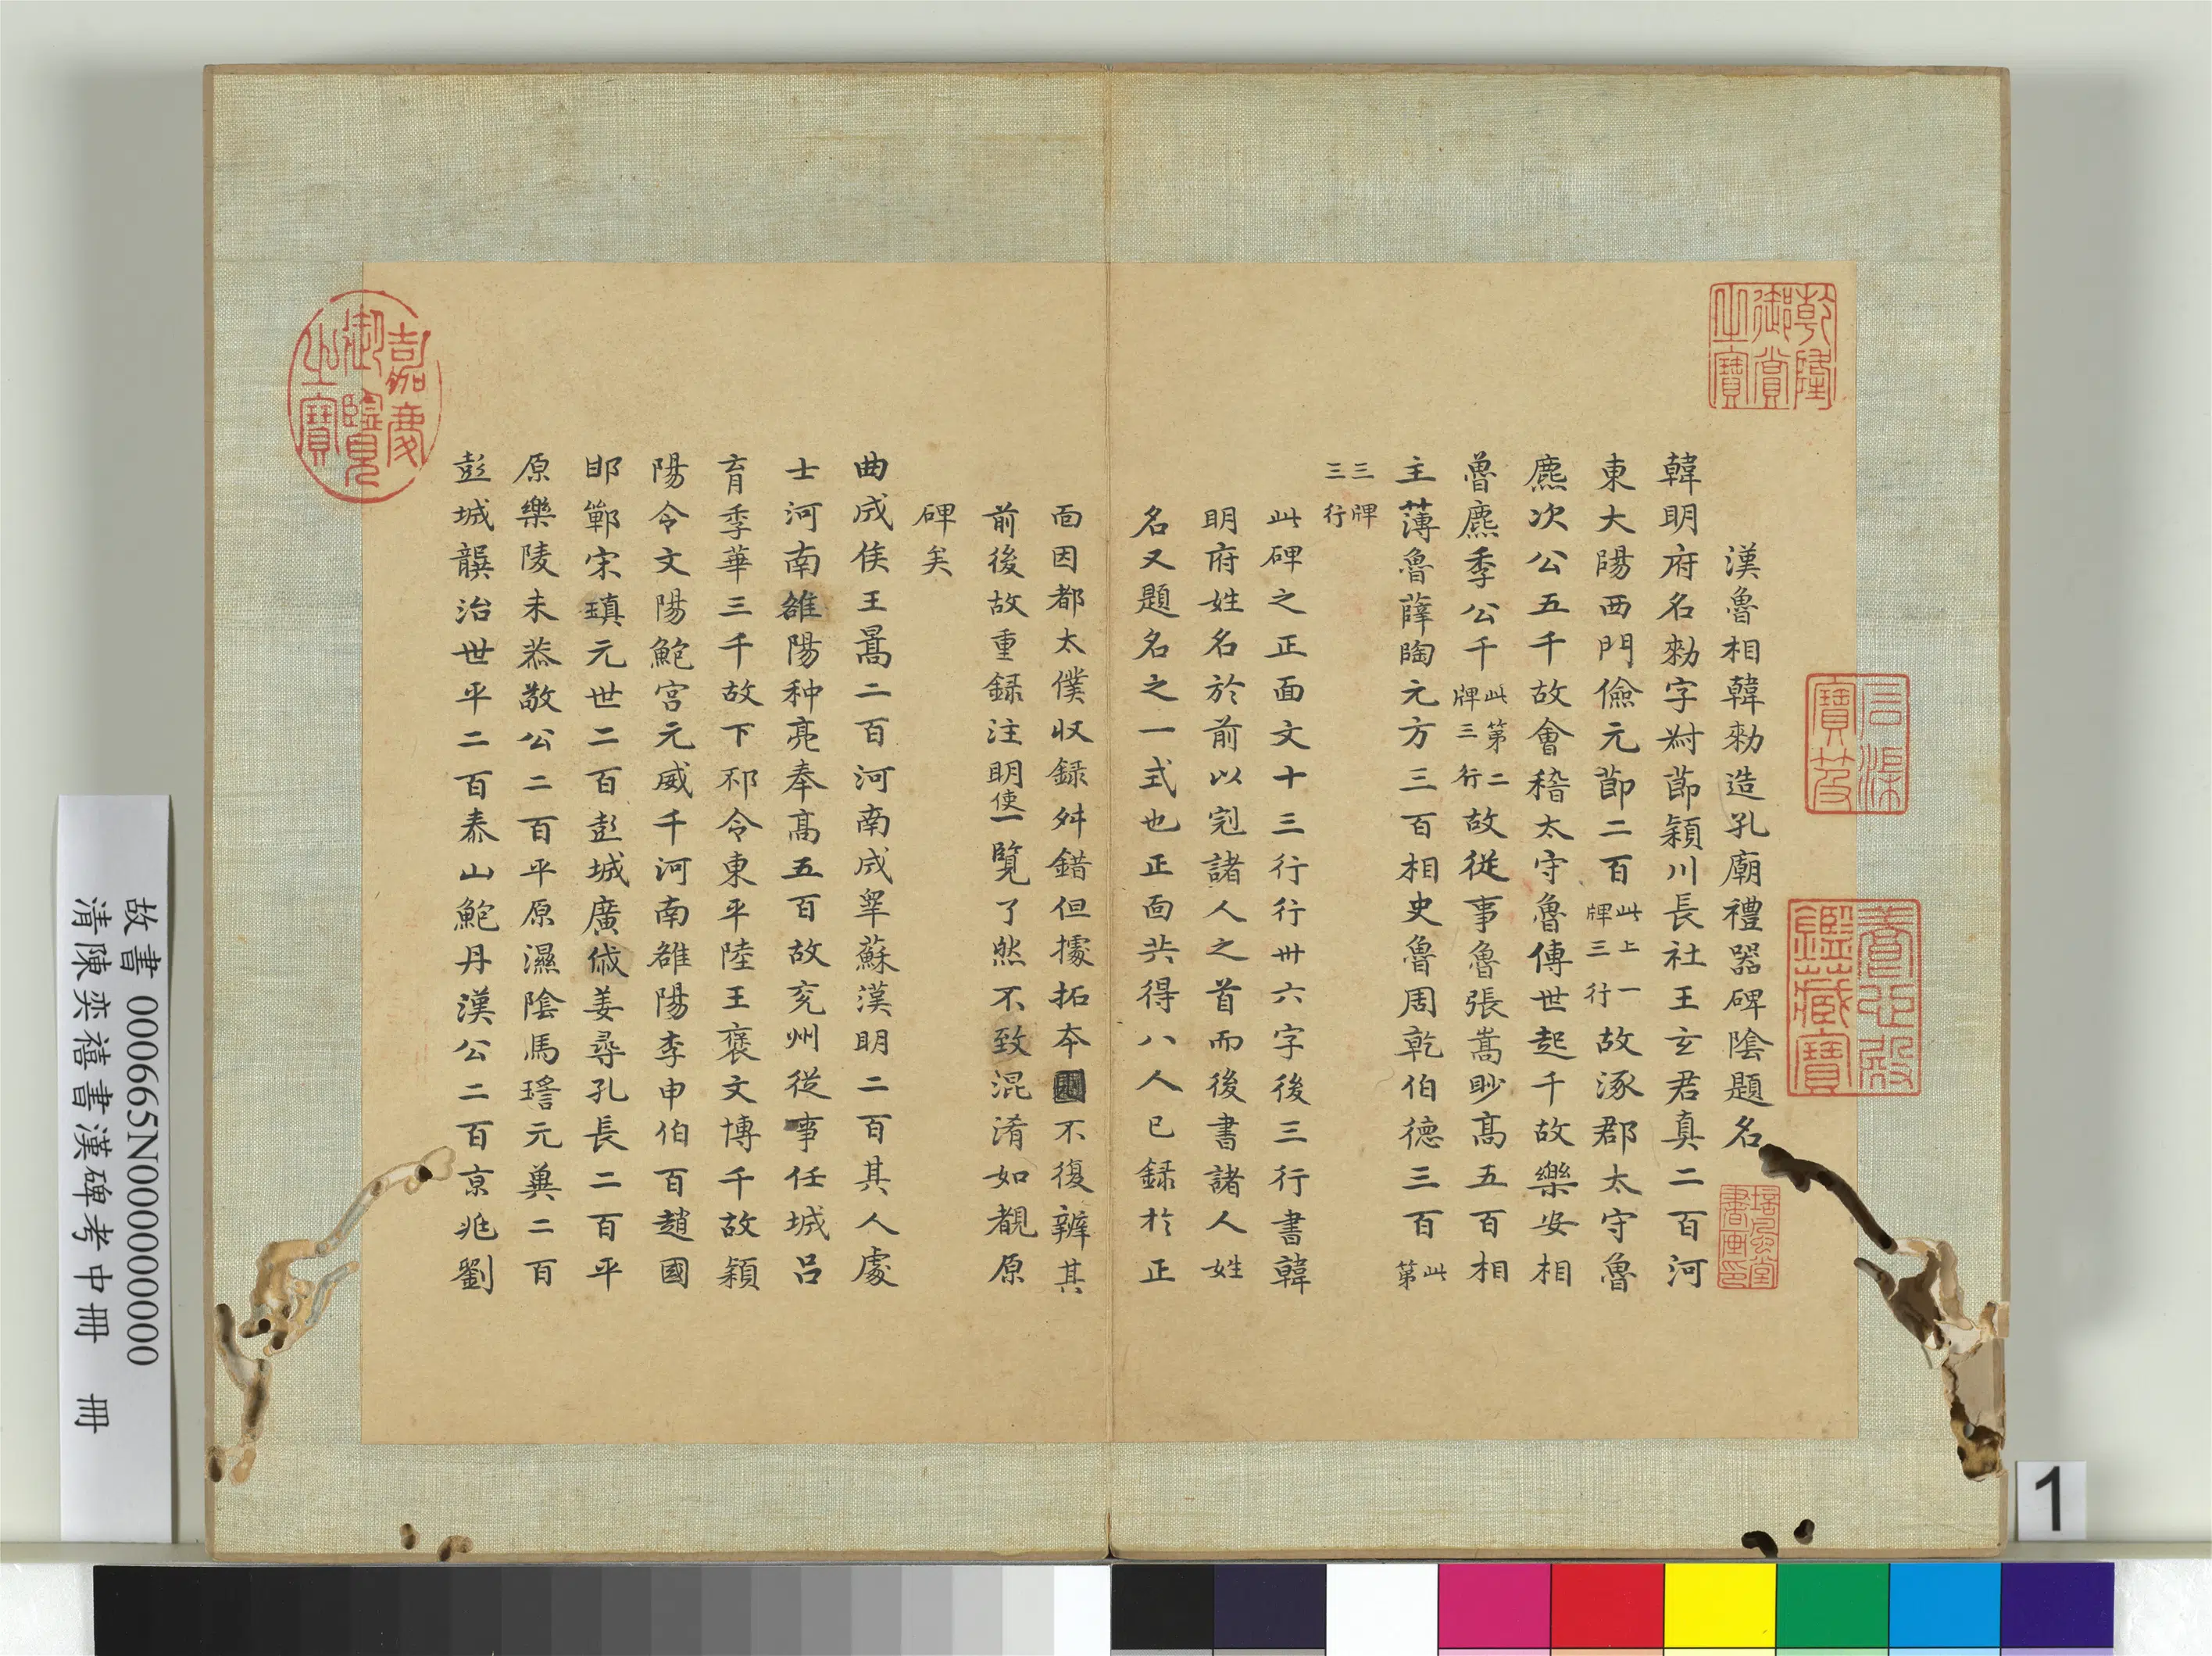 漢魯相韓勑造孔廟禮器碑陰題名
韓明府名勑字叔節潁川長社王玄君真二百河
東大陽西門儉元節二百此上一牌三行故涿郡太守魯
麃次公五千故會稽太守魯傅世起千故樂安相
魯麃季公千此第二牌三行故從事魯張嵩眇高五百相
主薄魯薛陶元方三百相史魯周乾伯德三百此第
三牌三行
此碑之正面文十三行行卅六字後三行書韓
明府姓名於前以冠諸人之首而後書諸人姓
名又題名之一式也正面共得八人已録於正
面因都太僕収録舛錯但據拓本不復辨其
前後故重録注明使一覽了然不致混淆如覩原
碑矣
曲成侯王暠二百河南成睪蘇漢明二百其人處
士河南雒陽种亮奉高五百故兖州從事任城吕
育季華三千故下邳令東平陸王褒文博千故潁
陽令文陽鮑宫元威千河南雒陽李申伯百趙國
邯鄲宋瑱元世二百彭城廣戚姜尋孔長二百平
原樂陵朱恭敬公二百平原濕陰馬瑶元冀二百
彭城龔治世平二百泰山鮑丹漢公二百京兆劉
乾隆御賞之寶
石渠寶笈
養心殿鑑藏寶
嘉慶御覽之寶
故書 000665N000000000
清陳奕禧書漢碑考中冊 冊
1